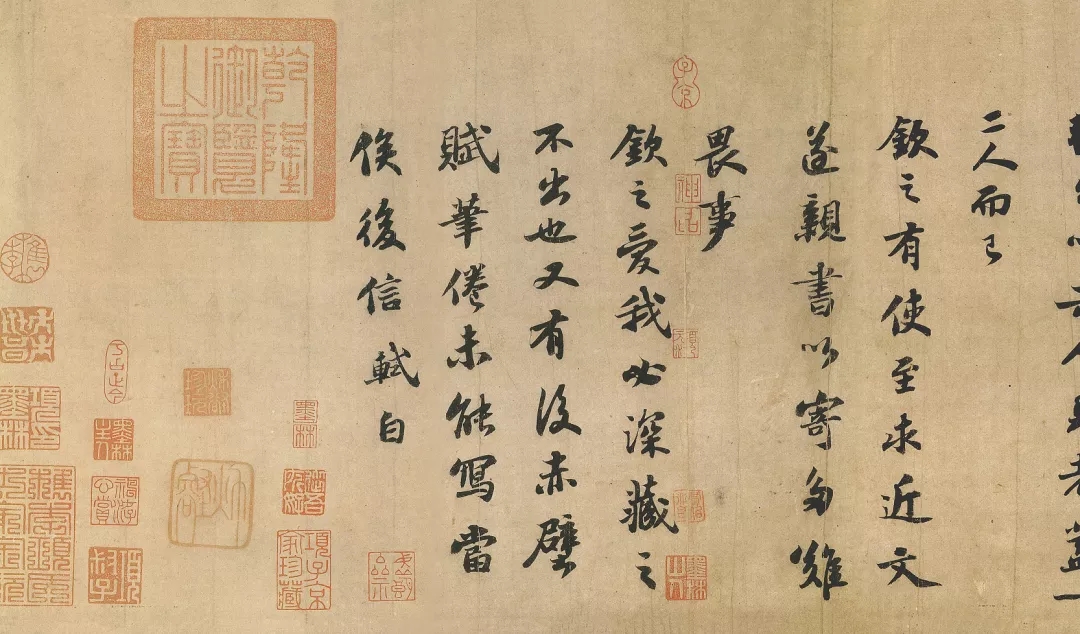 以示人見者盖一
二人而已
欽之有使至求近文
遂親書以寄多難
畏事
欽之愛我必深藏之
不出也又有後赤壁
賦筆倦未能寫當
俟後信 軾白
乾隆御覽之寶
神品
墨林
項子京家珍藏